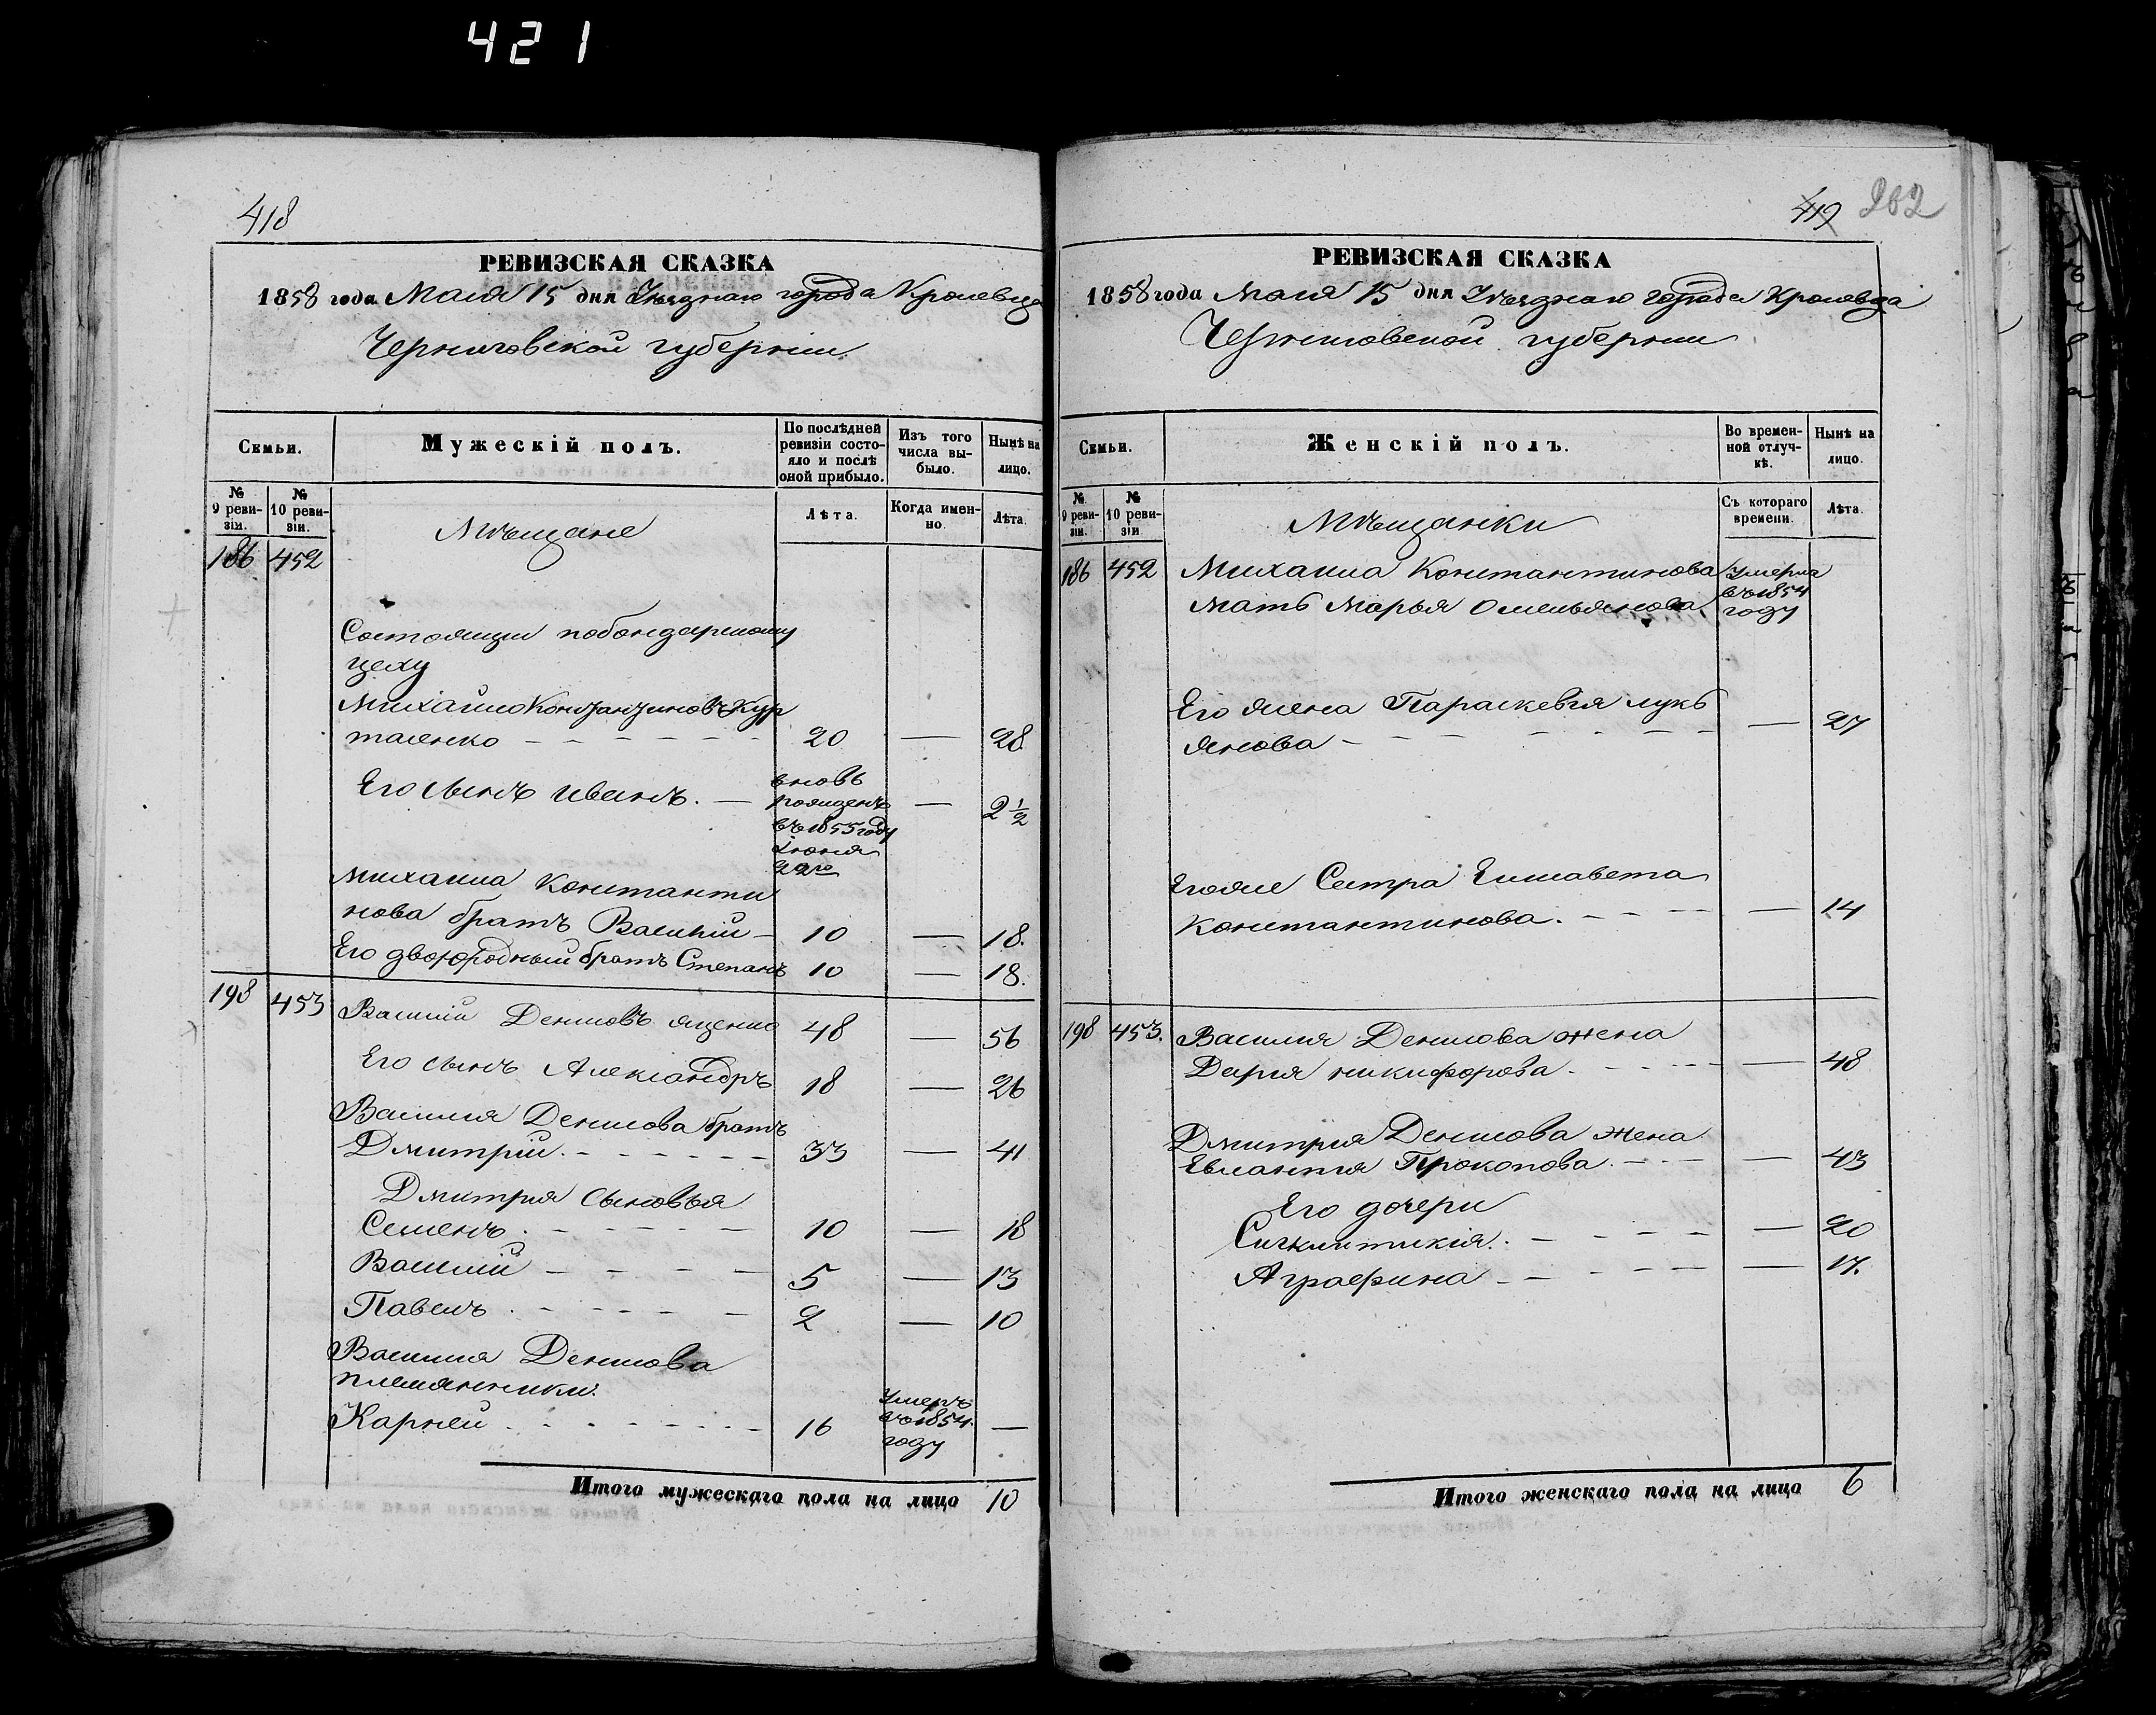 421
418
РЕВИЗСКАЯ СКАЗКА
1858 года Маія 15 дня Уѣзднаго города Кролевца
Черниговской губерніи
Семьи.
Мужескій полъ.
По послѣдней ревизіи состояло и послѣ оной прибыло.
Изъ того числа выбыло.
Нынѣ на лицо.
№ 9 ревизіи.
№ 10 ревизіи.
Мѣщане
Лѣта.
Когда именно.
Лѣта.
186 452
Состоящии побондарскому
цеху
Михайло Константиновъ Кур
таенко 20 — 28
Его сынъ Иванъ. — вновь рожденъ въ 1855 году Іюня 22го — 2 1/2
Михаила Константи
нова братъ Василій 10 — 18.
Его двоюродный братъ Степанъ 10 — 18.
198 453 Василій Денисовъ Яценко 48 — 56
Его сынъ Александръ 18 — 26
Василия Денисова братъ
Дмитрій. 33 — 41
Дмитрия сыновья
Семенъ. 10 — 18
Василій 5 — 13
Павелъ. 2 — 10
Василия Денисова
племянники.
Карней 16 Умеръ въ 1854. году —
Итого мужескаго пола на лицо 10
419 262
РЕВИЗСКАЯ СКАЗКА
1858 года Маія 15 дня Уѣзднаго города Кролевца
Черниговской губерніи
Семьи.
Женскій полъ.
Во временной отлучкѣ.
Нынѣ на лицо.
№ 9 ревизіи.
№ 10 ревизіи
Мѣщанки
Съ котораго времени.
Лѣта.
186 452 Михаила Константинова
мать Марья Омельянова Умерла въ 1854 году
Его жена Параскевія лукь
янова — 27
Егоже Сестра Елисавета
Константинова. — 14
198 453. Василия Денисова жена
Дария никифорова. — 48
Дмитрия Денисова жена
Евлантія Прокопова. — 43
Его дочери
Сигклитикія. — 20
Аграфина — 17.
Итого женскаго пола на лицо 6